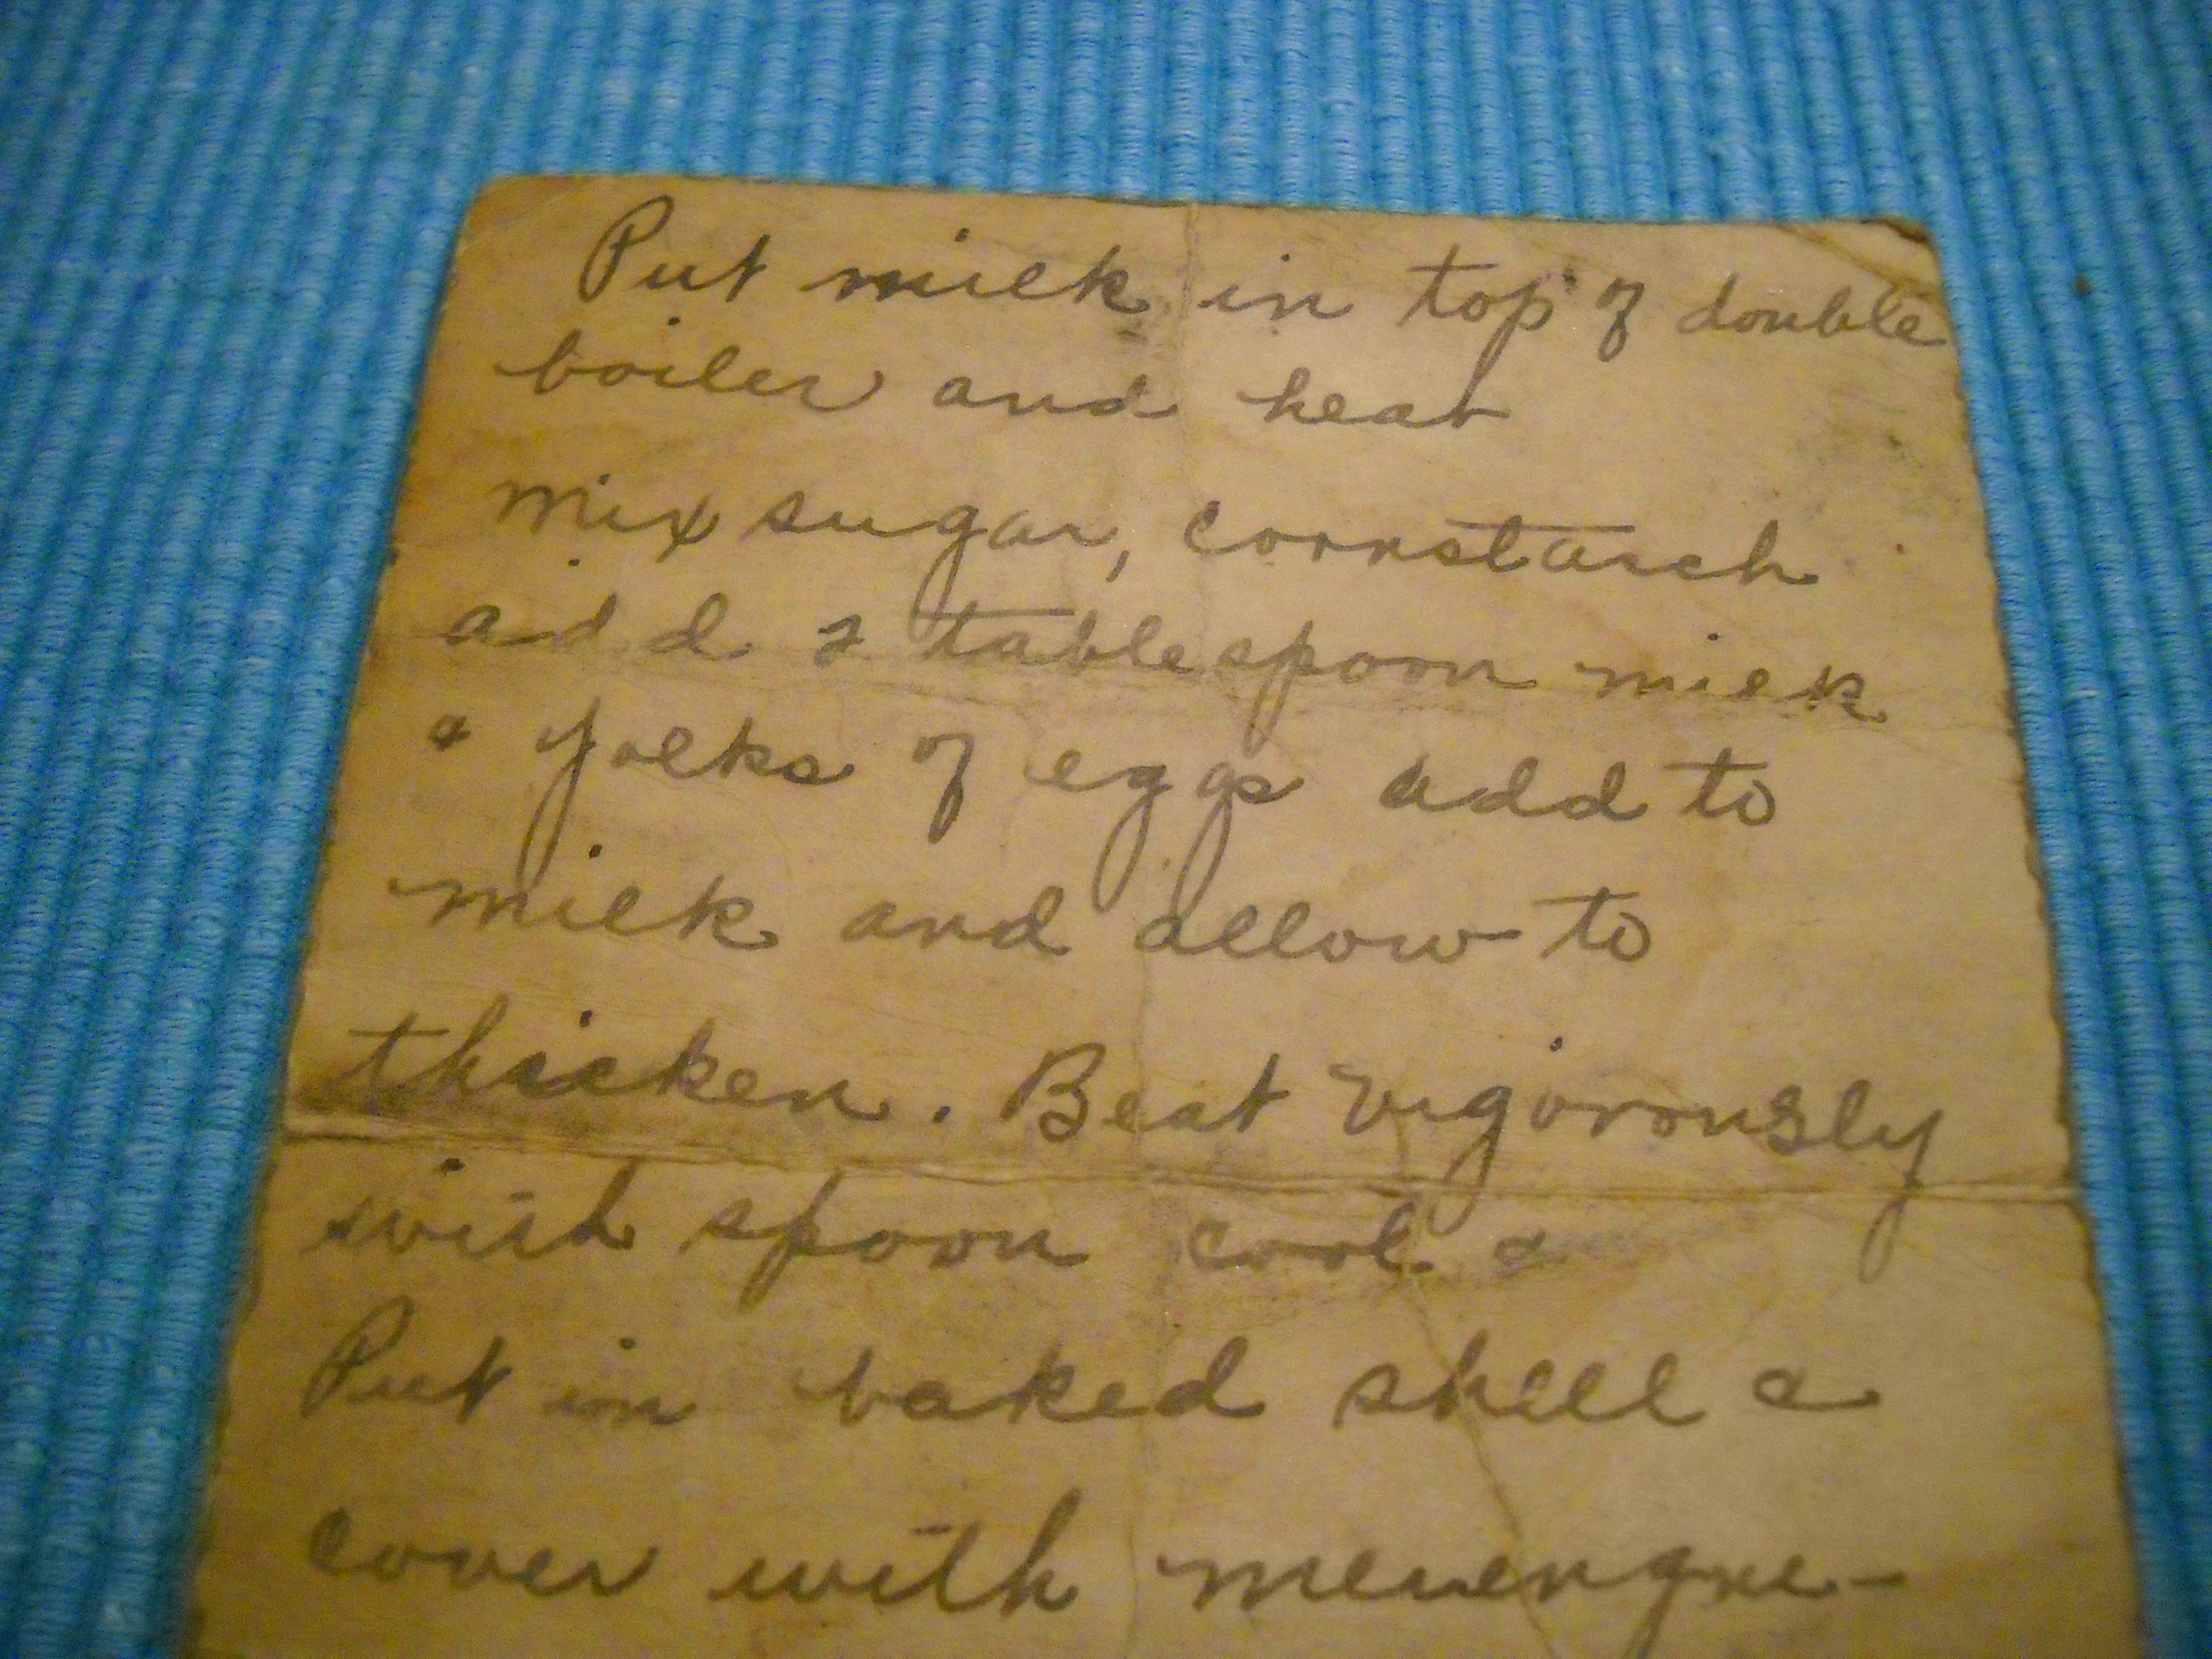 Put milk in top of double
boiler and heat
mix sugar, cornstarch
add 2 tablespoon milk
& yolks of eggs add to
milk and allow to
thicken. Beat vigorously
with spoon cool &
Put in baked shell &
cover with merengue-